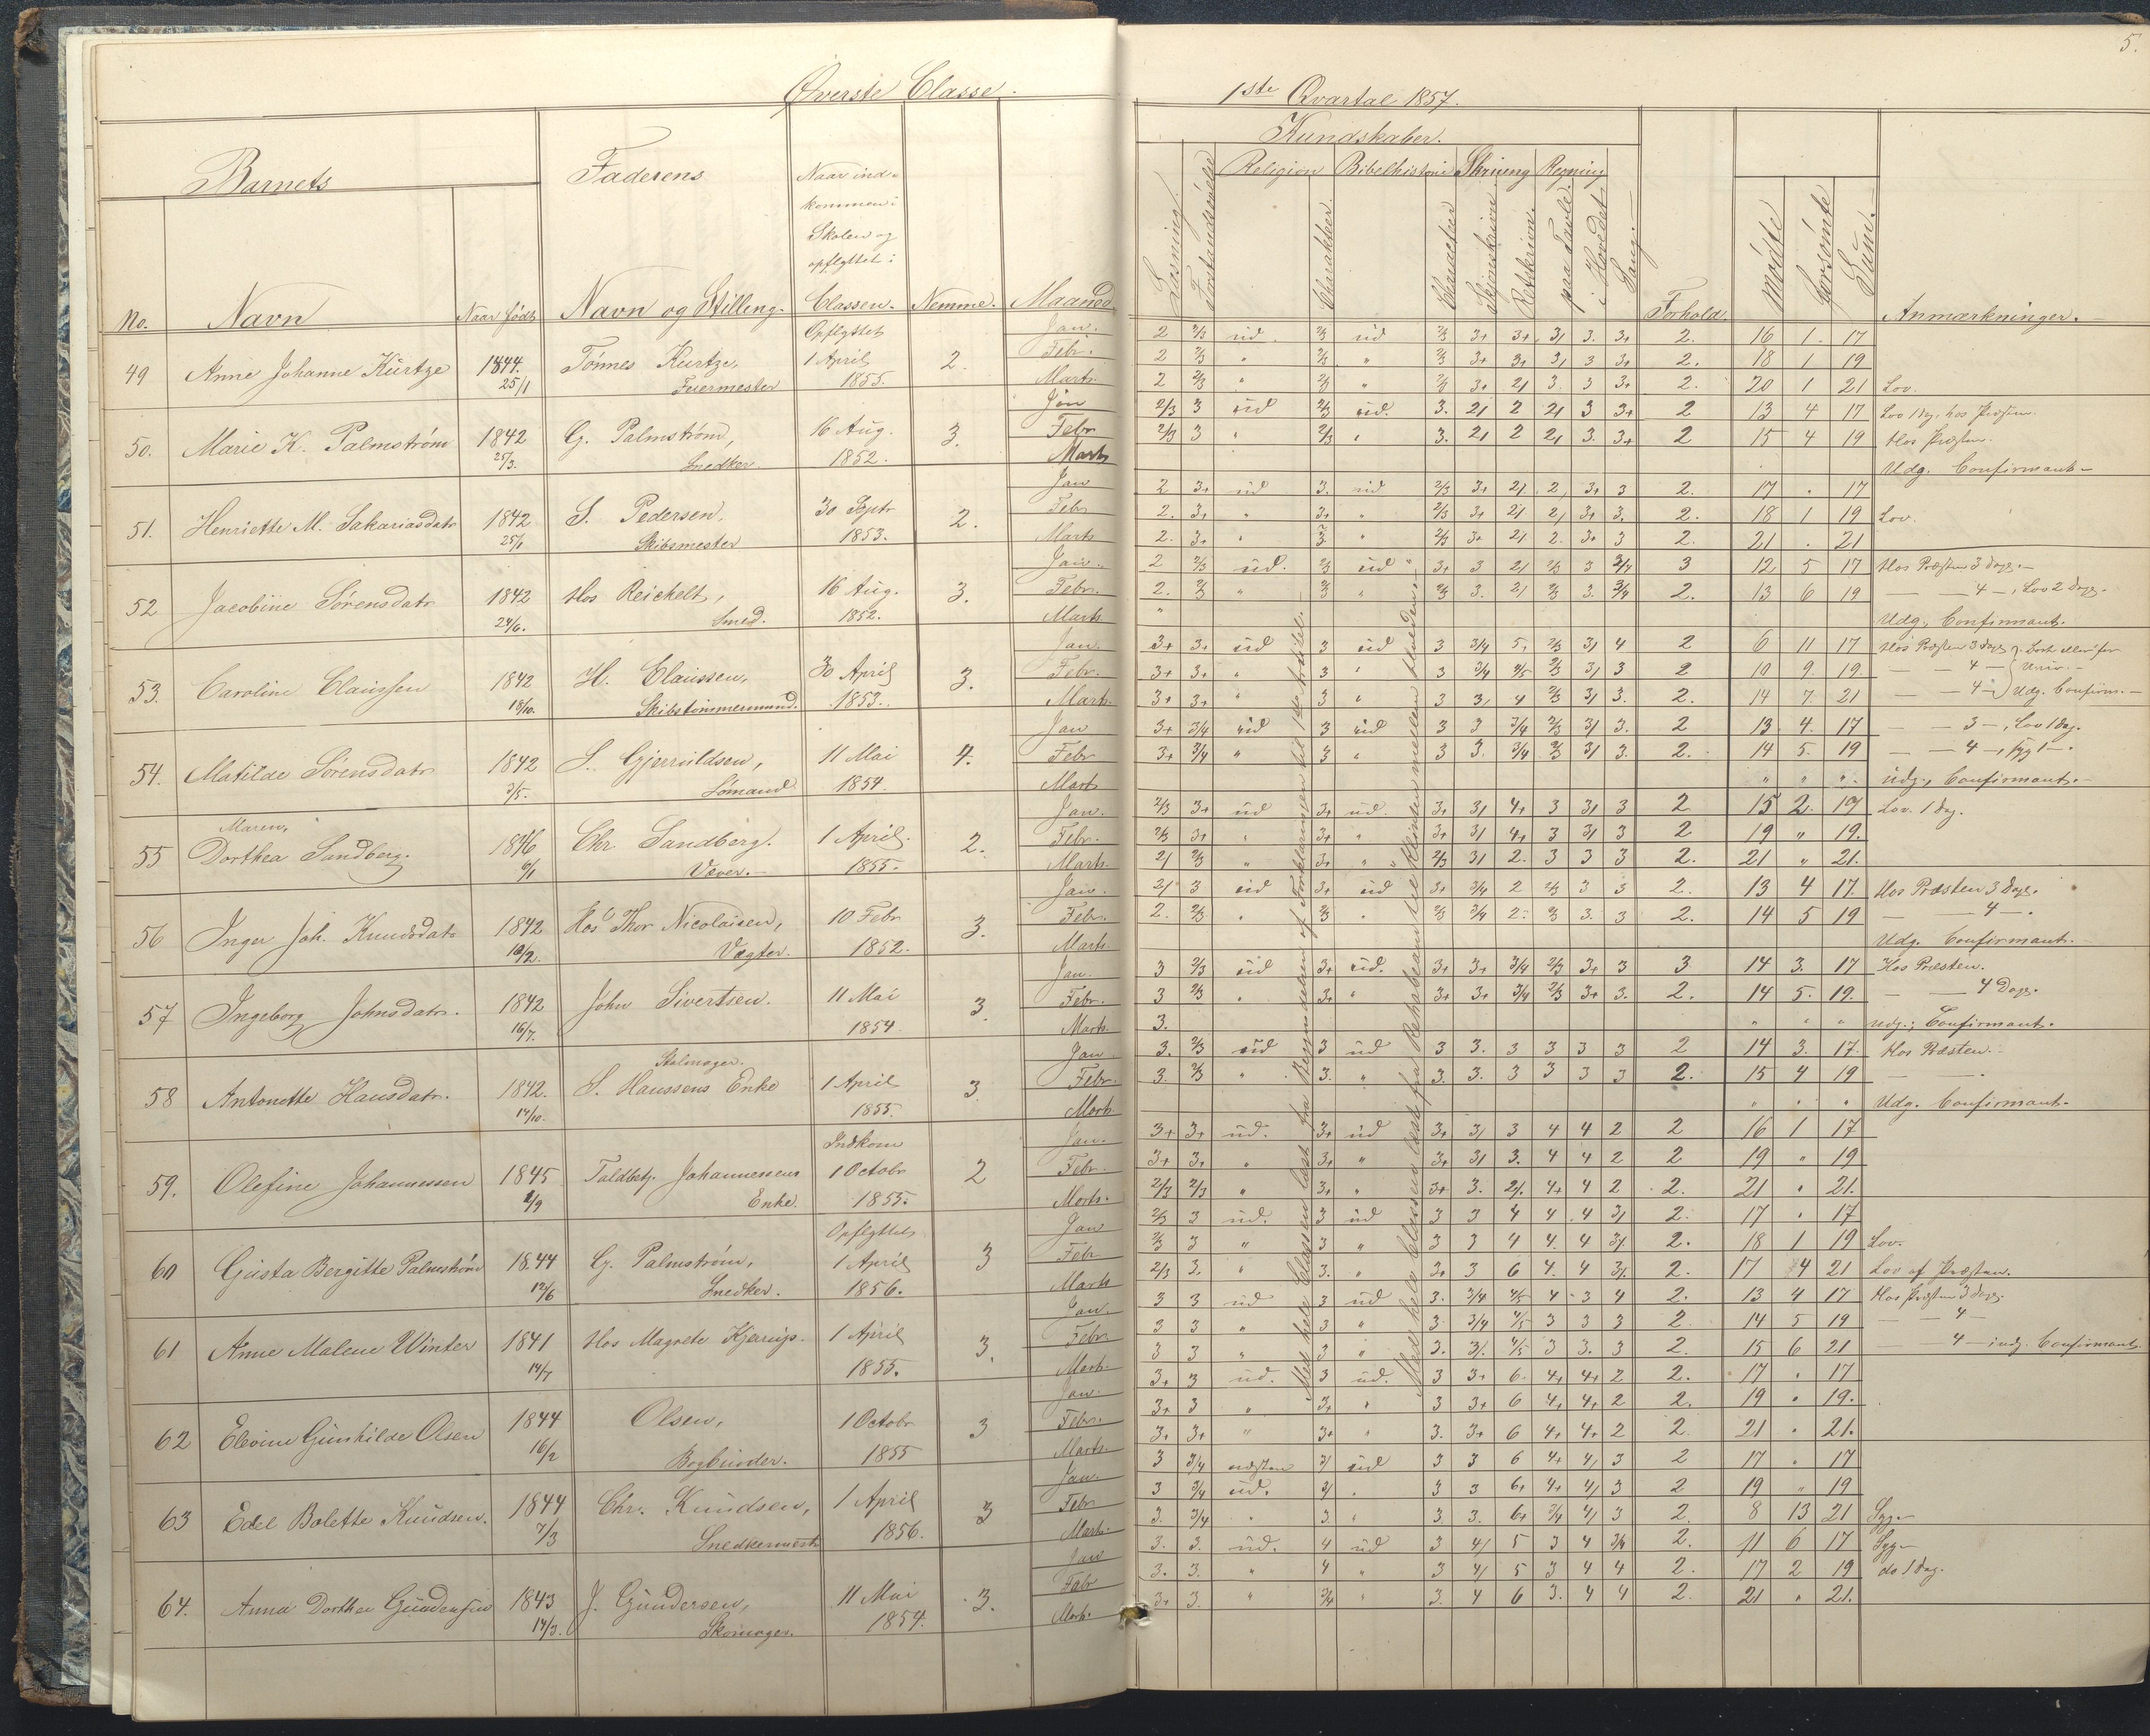 5.
Øverste Classe.
1ste Qvartal 1857.
Barnets
Faderens
Naar ind-
kommen i
Skolen og
opflyttet i
Kundskaber.
Religion Bibelhistorie Skrivning Regning
No. Navn Naar født Navn og Stilling. Classen. Nemme. Maaned
Læsning. Forstandsøvelse Charakter. Charakter Skjönskrivn. Retskrivn. paa Tavle. i Hovedet. Sang. Forhold. Mødte Forsömte Sum. Anmærkninger.
Opflyttet Jan. 2 2/3 ud. 2/3 ud 2/3 3+ 3+ 3/ 3. 3+ 2. 16 1. 17
49 Anne Johanne Kurtze 1844. Tönnes Kurtze, 1 April 2. Febr. 2 2/3 " 2/3 " 2/3 3+ 3+ 3/ 3 3+ 2. 18 1 19
25/1 Feiermester 1855. Marts 2 2/3 " 2/3 " 2/3 3+ 2/ 3. 3 3+ 2. 20 1 21 Lov.
Jan 2/3 3 ud 2/3 ud. 3. 2/ 2 2/ 3 3+ 2 13 4 17 Lov 1 Dag, hos Præsten.
50. Marie K. Palmström 1842 G. Palmström, 16 Aug. 3. Febr 2/3 3 " 2/3 " 3. 2/ 2 2/ 3. 3+ 2 15 4 19 Hos Præsten.
25/3. Snedker. 1852. Marts Udg. Confirmant.
Jan 2 3+ ud 3. ud 2/3 3+ 2/ 2/ 3+ 3 2. 17 . 17
51. Henriette M. Sakariasdatr 1842 S. Pedersen, 30 Septr 2. Febr 2. 3+ " 3+ " 2/3 3+ 2/ 2/ 3+ 3. 2. 18 1 19 Lov.
25/1 Skibsmester 1853. Marts 2. 3+ " 3 " 2/3 3+ 2/ 2. 3+ 3 2. 21 . 21
Jan. 2 2/3 ud. 2/3 ud 3+ 3 2/ 2/3 3 3/4 3 12 5 17 Hos Præsten 3 Dage.
52 Jacobine Sörensdatr 1842 Hos Reichelt, 16 Aug. 3. Febr. 2. 2/3 " 2/3 " 2/3 3. 2/ 2/3 3. 3/4 2. 13 6 19 — — 4 —, Lov 2 Dage.
24/6. Smed. 1852. Marts " Udg. Confirmant.
Jan. 3+ 3+ ud 3 ud 3 3/4 5+ 2/3 3/ 4 2 6 11 17 Hos Præsten 3 Dage
53. Caroline Claussen 1842 H. Claussen, 30 April 3. Febr. 3+ 3+ " 3 " 3 3/4 4/5 2/3 3/ 3 2 10 9. 19 — — 4 —
18/10. Skibstömmermand. 1853. Marts. 3+ 3+ " 3 " 3 3/ 4 2/3 3/ 3. 2. 14 7. 21 — — 4 — Udg. Confirm.
Jan 3+ 3/4 ud 3 ud 3 3 3/4 2/3 3/ 3. 2 13. 4. 17 — 3 —, Lov 1 Dag.
54. Matilde Sörensdatr 1842 S. Gjerruldsen, 11 Mai 4. Febr 3+ 3/4 " 3 " 3 3. 3/4 2/3 3/ 3. 2. 14 5. 19 — 4 —, Syg 1 —.
3/5. Sömand 1854. Marts " " " Udg. Confirmant.
Maren, Jan. 2/3 3+ ud 3+ ud. 3+ 3/ 4+ 3 3/ 3 2 15 2. 17 Lov. 1 Dag.
55 Dorthea Sandberg. 1846 Chr. Sandberg. 1 April. 2. Febr. 2/3 3+ " 3+ " 3+ 3/ 4+ 3 3/ 3 2 19 " 19.
6/1 Væver. 1855. Marts. 2/ 2/3 " 3+ " 2/3 3/ 2. 3 3 3 2. 21 " 21.
Jan. 2/ 3 ud 3+ ud 3+ 3/4 2 2/3 3 3 2. 13 4 17. Hos Præsten 3 Dage.
56 Inger Joh. Knudsdatr 1842 Hos Thor Nicolaisen, 10 Febr 3. Febr. 2. 2/3 " 2/3 " 2/3 3/4 2. 2/3 3. 3 2. 14 5 19 — — 4 —.
10/2. Vægter. 1852. Marts. Udg. Confirmant.
Jan. 3 2/3 ud 3+ ud. 3+ 3+ 3/4 2/3 3+ 3 3 14 3. 17 Hos Præsten.
57 Ingeborg Johnsdatr. 1842 John Sivertsen. 11 Mai 3. Febr. 3 2/3 " 3+ " 3+ 3+ 3/4 2/3 3+ 3. 2. 14 5. 19. — 4 Dage.
16/7. 1854. Marts. 3. " " " Udg. Confirmant.
Stolmager. Jan. 3. 2/3 ud 3 ud 3 3. 3 3 3 3 2 14 3. 17. Hos Præsten.
58 Antonette Hansdatr. 1842. S. Hanssens Enke 1 April 3 Febr. 3. 2/3 " 3. " 3. 3. 3 3 3 3 2. 15 4 19 — —.
14/10. 1855. Marts " " " Udg. Confirmant.
Indkom Jan. 3+ 3+ ud. 3+ ud 3+ 3/ 3 4 4 2 2 16 1 17
59. Olefine Johannessen 1845 Toldbetj. Johannessens 1 Octobr 2 Febr. 3+ 3+ " 3+ " 3+ 3/ 3. 4 4 2 2 19 " 19
1/9 Enke. 1855. Marts. 2/3 2/3 " 3+ " 3+ 3. 2/. 4+ 4 2 2. 21 " 21.
Opflyttet Jan 2/3 3 ud. 3 ud 3 3 4 4 4 3/ 2. 17 . 17
60 Gusta Bergitte Palmström 1844 G. Palmström, 1 April 3 Febr 2/3 3 " 3 " 3 3 4 4. 4 3/. 2. 18 1 19 Lov.
12/6 Snedker. 1856. Marts 2/3 3. " 3. " 3+ 3 6 4. 4 3/. 2. 17 4 21 Lov af Præsten.
Jan. 3 3 ud 3 ud 3. 3/4 4/5 4 3 4 2. 13 4 17 Hos Præsten 3 Dage.
61 Anne Malene Winter 1841 Hos Magrete Kjærup. 1 April 3. Febr. 3 3 " 3 " 3 3/4 4/5 3 3 3 2. 14 5 19 — — 4 —
14/7 1855. Marts. 3 3 " 3 " 3. 3/. 4/5 3 3. 3 2. 15 6 21 — 4 — udg. Confirmant.
Jan. 3+ 3 ud. 3 ud. 3 3+ 6. 4+ 4+ 2 2. 17 . 17
62 Elevine Gunhilde Olsen 1844 Olsen, 1 Octobr 3 Febr. 3+ 3 " 3+ " 3 3+ 6 4+ 4+ 2 2. 19 . 19.
16/2 Bogbinder. 1855 Marts. 3+ 3+ " 3+ " 3. 3+ 6 4+ 4+ 2 2. 21 . 21.
Jan. 3 3/4 næsten 3/ ud 3 3 6 4+ 4/ 3 2 17 . 17
63 Edel Bolette Knudsen. 1844 Chr. Knudsen, 1 April 3 Febr 3 3/4 ud. 3/ " 3 3 6+ 4+ 4/ 3 2 19 " 19
7/3 Snedkermestr 1856. Marts. 3. 3/4 " 3. " 3. 3. 6+ 3/4 4/ 3 2. 8 13 21 Syg.
Jan 3. 3. ud. 4 ud 3 4/ 5 3 4 3/4 2. 11 6 17 Syg.
64. Anna Dorthea Gundersen 1843 J. Gundersen, 11 Mai 3. Febr 3. 3. " 4 " 3 4/ 5 3 4 4 2. 17 2 19 do 1 Dag.
14/3. Skomager. 1854. Marts. 3+ 3. " 3/4 " 3. 4 6 3. 4 4 2. 21 . 21.
Med hele Classen læst fra af Forklaringen til
Med hele Classen læst fra Rehabeam til